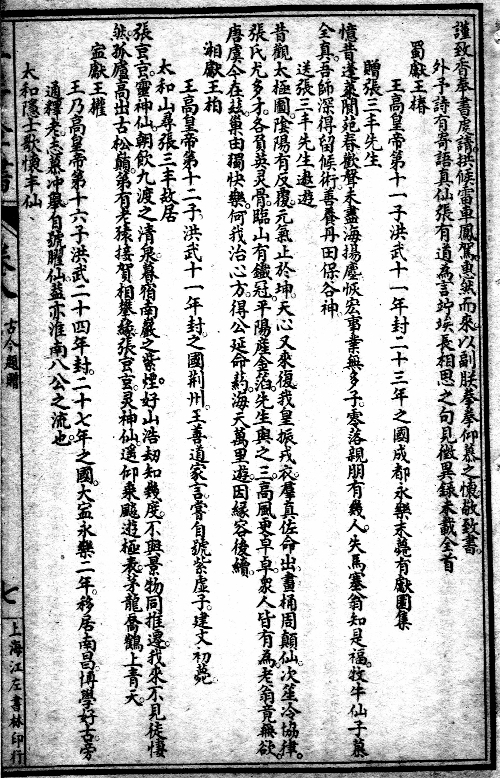 謹致香奉書虔請拱候雷車鳳駕惠然而來以副朕拳拳仰慕之懷敬致書
外予詩有寄語真仙張有道為言竚埃長相思之句見徵異錄未載全首
蜀獻王椿
王高皇帝第十一子洪武十一年封二十三年之國成都永樂末薨有獻園集
贈張三丰先生
憶昔蓬萊閬苑春歡聲未盡海揚塵恢宏事業無多子零落親朋有幾人失馬塞翁知是福牧牛仙子慕
全真吾師深得留候術善養丹田保谷神
送張三丰先生遨遊
昔觀太極圖陰陽有反覆元氣止於坤天心又來復我皇振戎衣羣真佐命出畫桶周顛仙次笙冷協律
張氏尤多才各負英灵骨臨山有鐵冠平陽產金箔先生與之三高風更卓卓衆人皆有為老翁竟無欲
唐虞今在茲巢由獨快樂何我冶心方得公延命葯海天萬里遊因緣容後續
湘獻王柏
王高皇帝第十二子洪武十一年封之國荆州王善道家言嘗自號紫虛子建文初薨
太和山尋張三丰故居
張玄玄靈神仙朝飲九渡之清泉暮宿南巖之紫煙好山浩劫知幾度不與景物同推遷我來不見徒悽
然孤廬高出古松巔第有老猿接賀相攀緣張玄玄灵神仙遙仰乘飈遊極表茅龍喬鶴上青天
寍獻王權
王乃高皇帝第十六子洪武二十四年封二十七年之國大寍永樂二年移居南昌博學好古旁
通釋老志慕冲舉自號臞仙蓋亦淮南八公之流也
太和隱士歌懷丰仙
古今題贈
七
上海江左書林印行